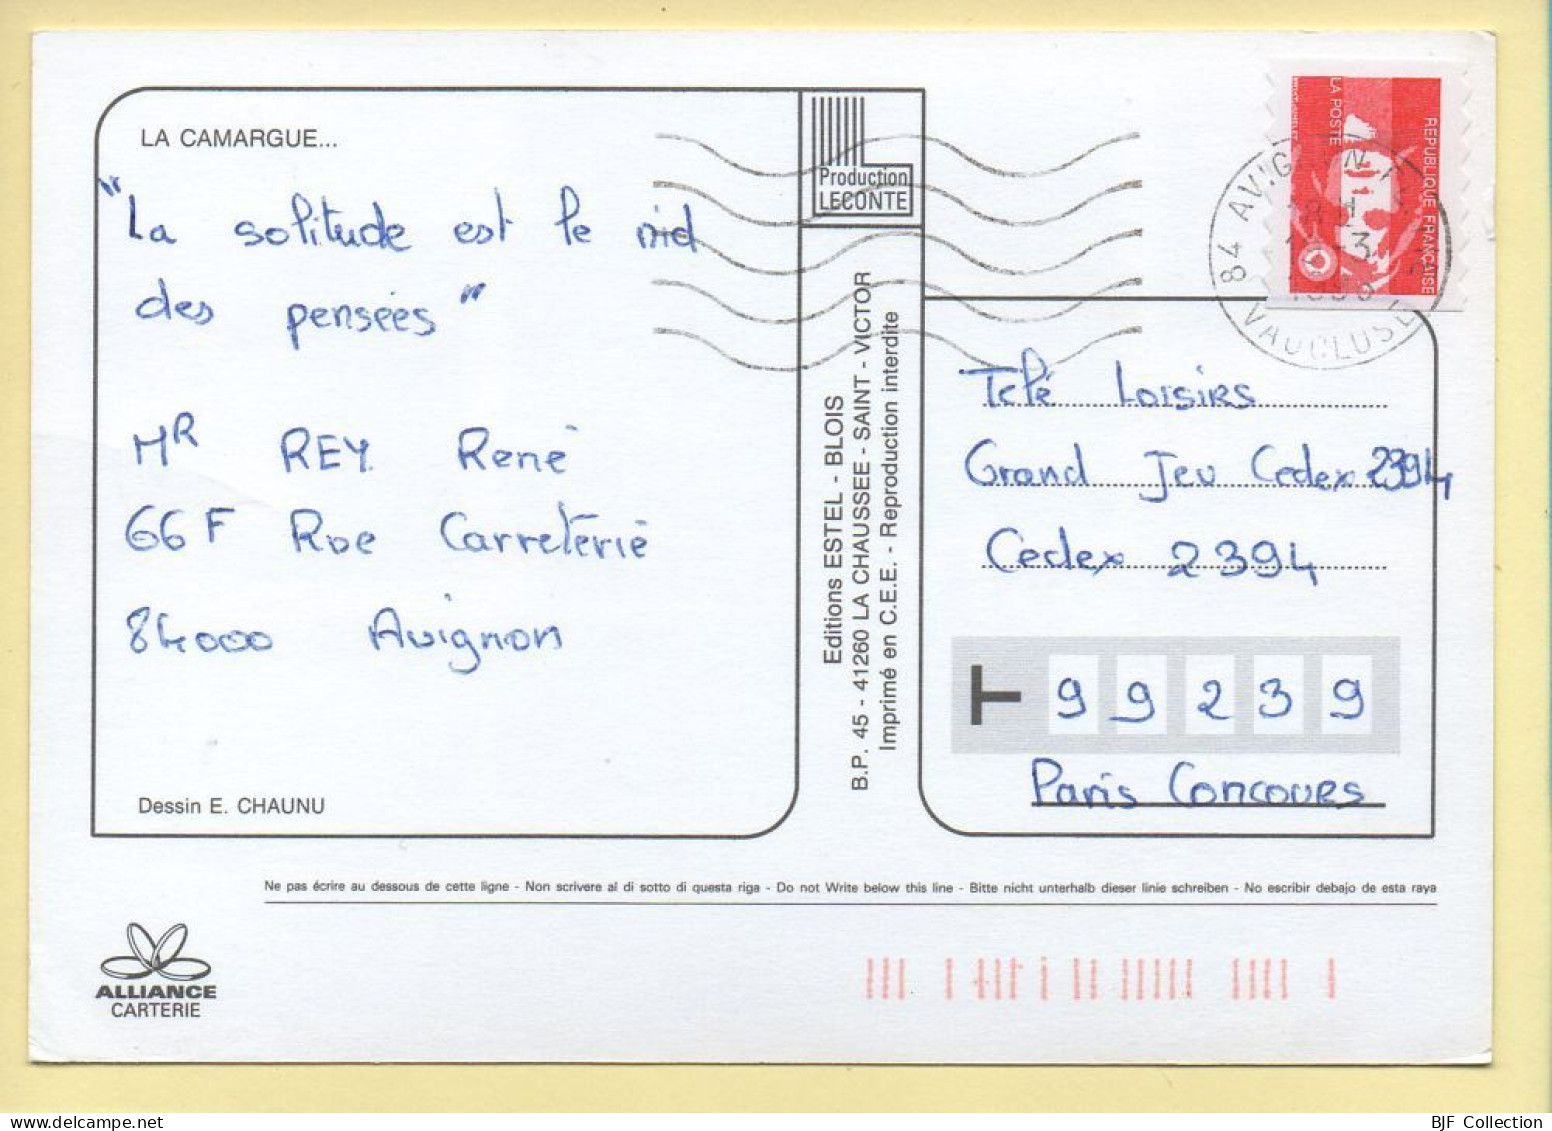 LA CAMARGUE...
"La solitude est le nid
des pensées"
Mr REY René
66 F Rue Carreterie
84000 Avignon
Dessin E. CHAUNU
Production
LECONTE
Editions ESTEL - BLOIS
B.P. 45 - 41260 LA CHAUSSEE - SAINT - VICTOR
Imprimé en C.E.E. - Reproduction interdite
REPUBLIQUE FRANÇAISE
LA POSTE
84 AVIGNON
VAUCLUSE
Télé Loisirs
Grand Jeu Cedex 2394
Cedex 2394
T 99239
Paris Concours
Ne pas écrire au dessous de cette ligne - Non scrivere al di sotto di questa riga - Do not Write below this line - Bitte nicht unterhalb dieser linie schreiben - No escribir debajo de esta raya
ALLIANCE
CARTERIE
BJF Collection